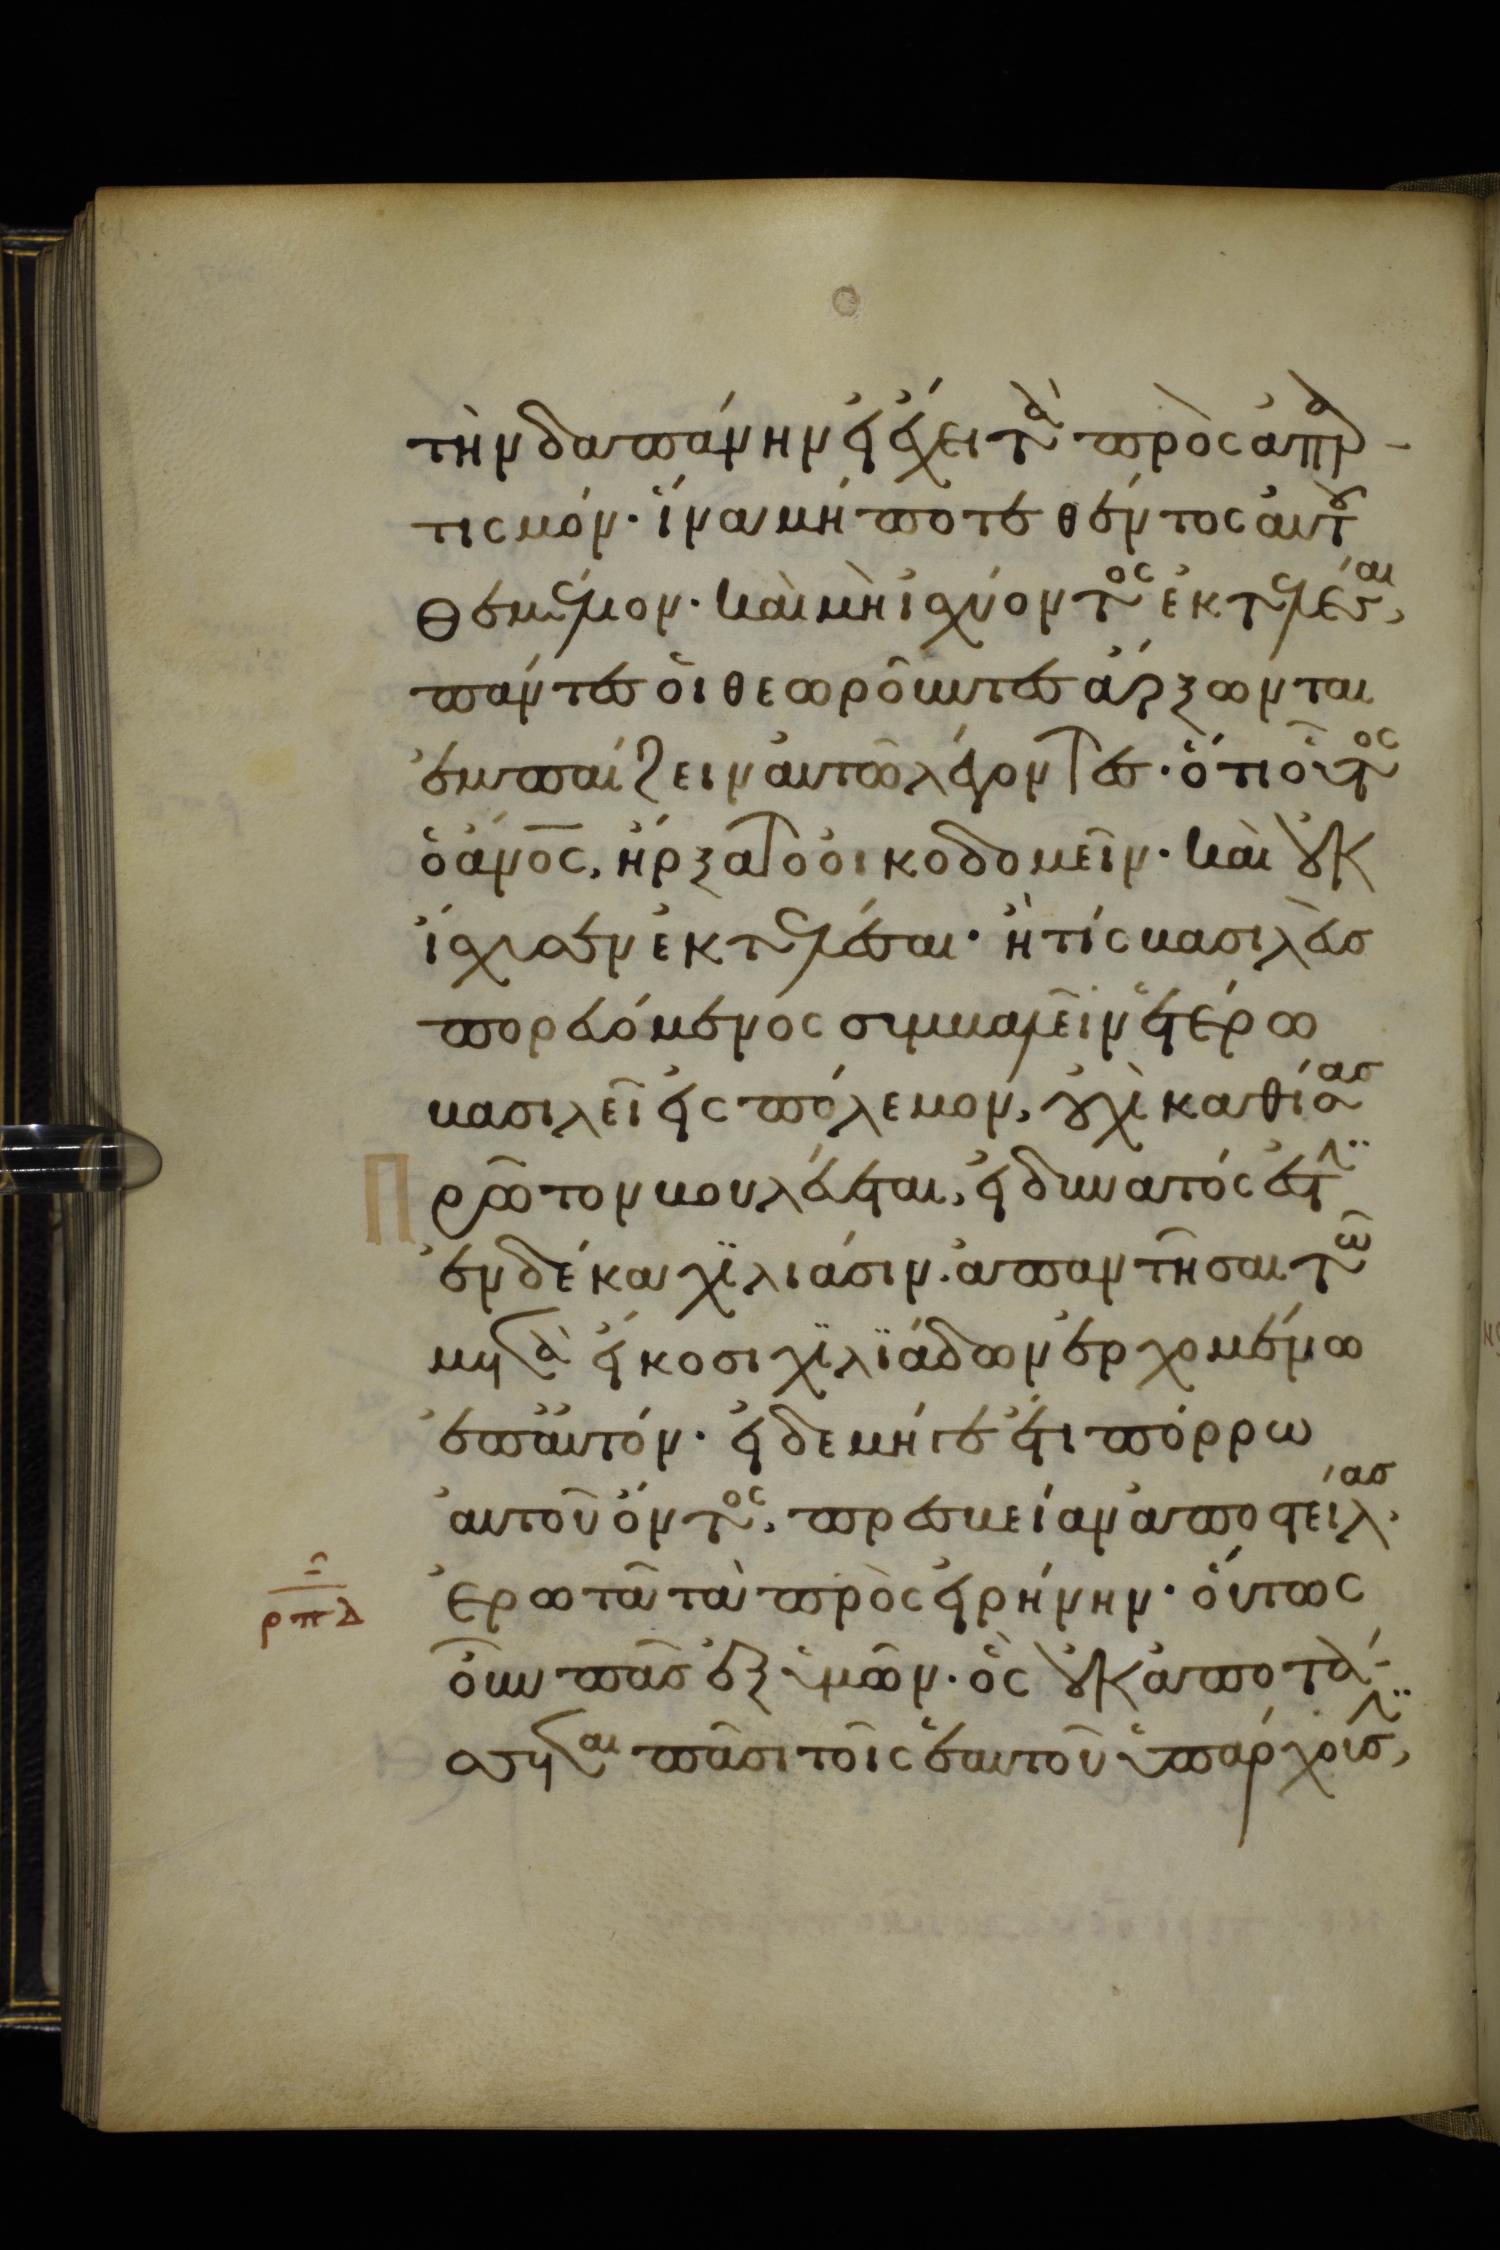 τὴν δαπάνην εἰ ἔχει τὰ πρὸς ἀπαρ-
τισμόν· ἵνα μή ποτε θέντος αὐτοῦ
θεμέλιον· καὶ μὴ ἰσχύοντος ἐκτελέσαι,
πάντες οἱ θεωροῦντες ἄρξωνται
ἐμπαίζειν αὐτῶ λέγοντες· ὅτι οὗτος
ὁ ἀνος, ἤρξατο οἰκοδομεῖν· καὶ οὐκ
ἴσχυσεν ἐκτελέσαι· ἢ τίς βασιλεὺς
πορευόμενος συμβαλεῖν ἑτέρω
βασιλεῖ εἰς πόλεμον, οὐχὶ καθίσας
Πρῶτον βουλεύεται, εἰ δυνατός ἐστιν
ἐν δέκα χιλιάσιν. ἀπαντῆσαι τῶ
μετὰ εἴκοσι χιλιάδων ἐρχομένω
ἐπ' αὐτόν· εἰ δὲ μήγε ἔτι πόρρω
αὐτοῦ ὄντος, πρεσβείαν ἀποστείλας.
ἐρωτᾶ τὰ πρὸς εἰρήνην· οὕτως
ξ
ρπδ
οὖν πᾶς ἐξ ὑμῶν· ὃς οὐκ ἀποτά-
σσεται πᾶσι τοῖς ἑαυτοῦ ὑπάρχουσιν,